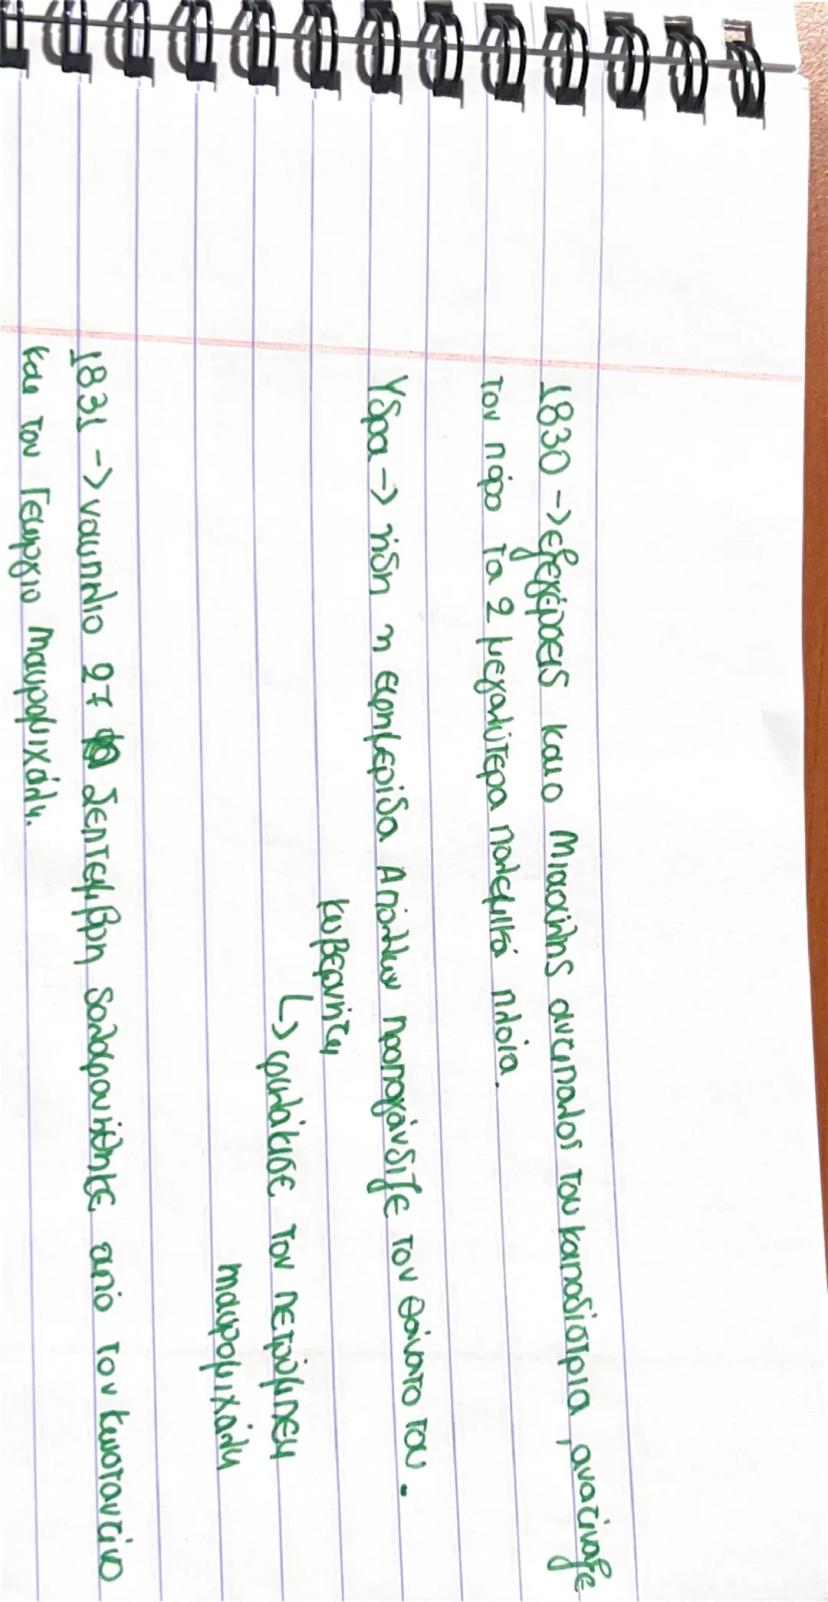 1830 -> εξεγέρσεις και ο Μιαούλης αντιπαλος του καποδίστρια, ανατίναξε
τον πόρο τα 2 μεγαλύτερα πολεμικά πλοία.
Υδρα -> ήδη η εφημερίδα Απόλλων προπαγάνδιζε τον θάνατο του.
κυβερνήτη
↳ φυλάκισε τον πετρόμπεη
μαυρομιχάλη
1831 -> ναυπλιο 27 Σεπτεμβρη δολοφονήθηκε από τον κωνσταντίνο
και τον Γεωργιο μαυρομιχάλη.